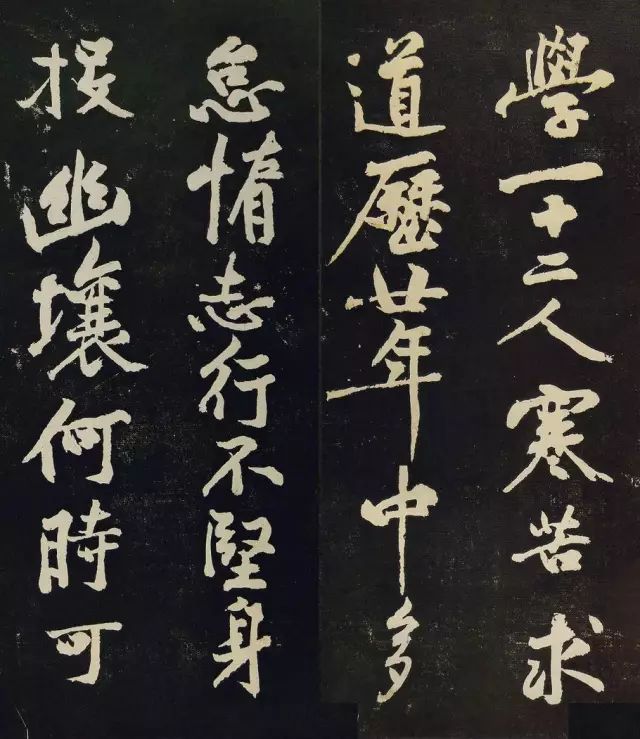 學一十二人寒苦求
道歷廿年中多
怠惰志行不堅身
投幽壤何時可